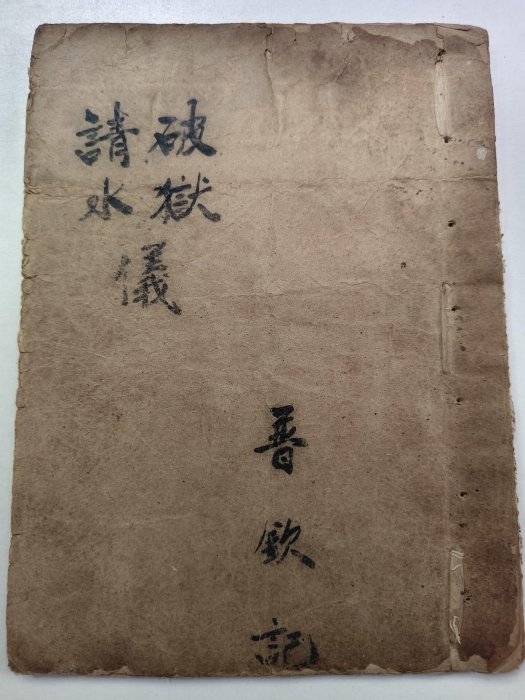 破獄
請水
儀
普欽記